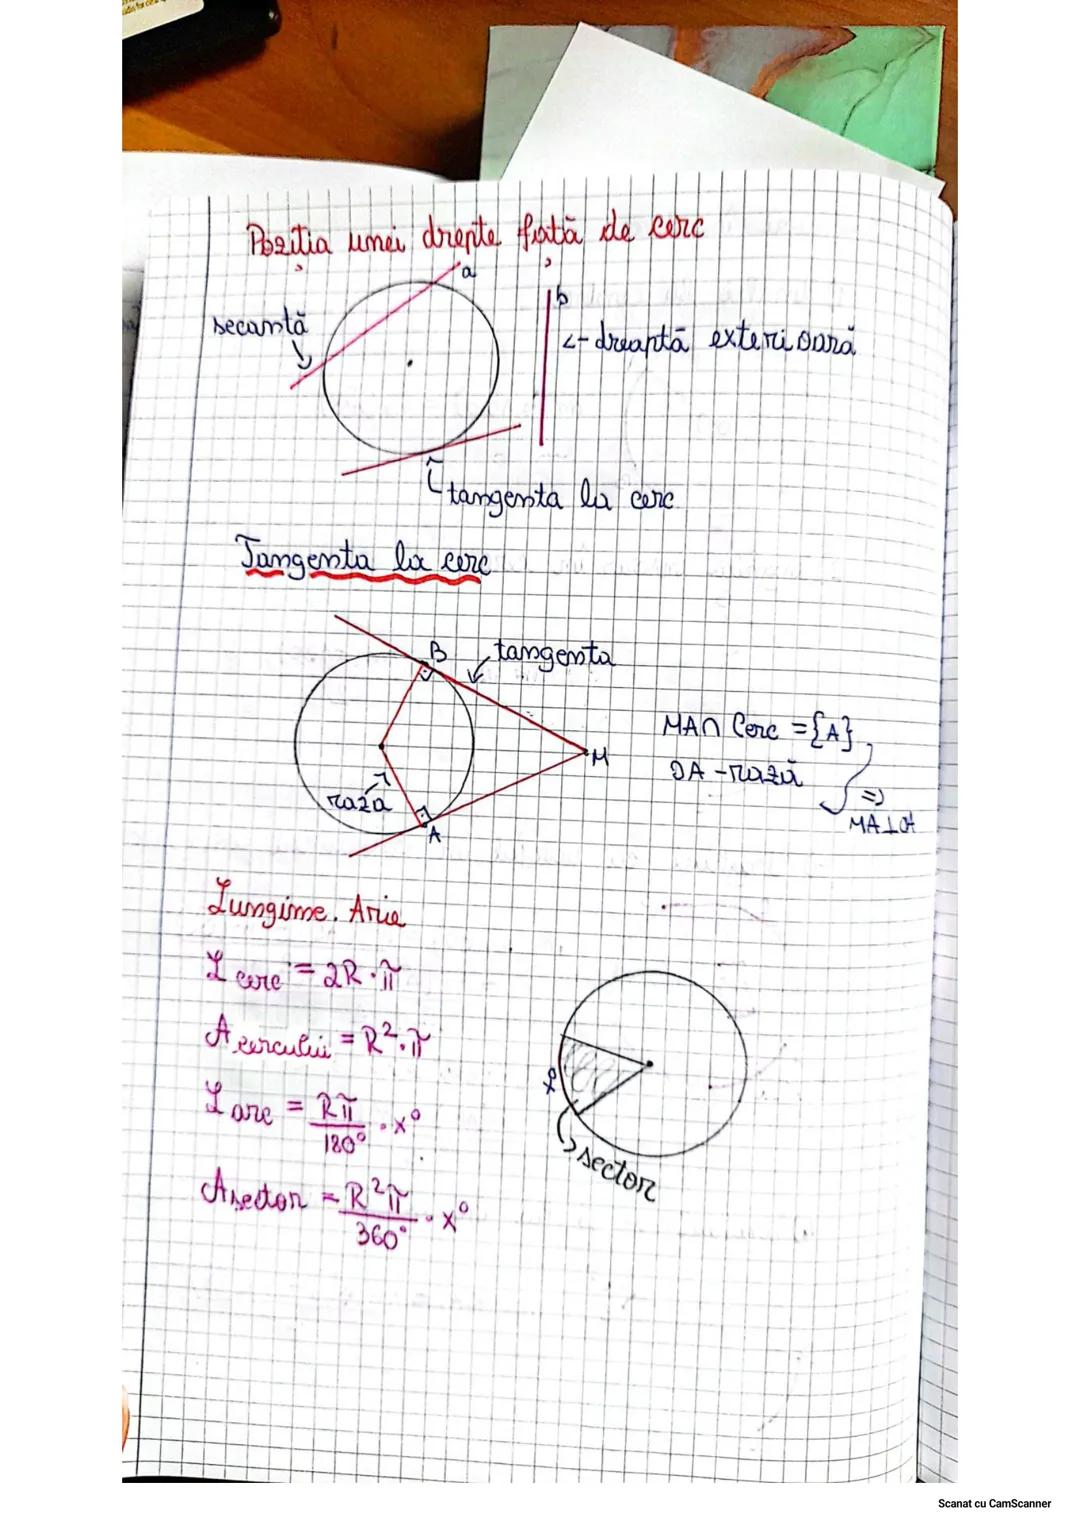 Poziția unei drepte față de cerc
a
secantă
b
<- dreaptă exterioară
tangenta la cerc
Tangenta la cerc
B
tangenta
M
raza
A
MA∩ Cerc = {A}
OA - rază
=>
MA⊥OA
Lungime. Arie
L cerc = 2R·π
A cercului = R²·π
L arc = Rπ/180° · x°
A sector = R²π/360° · x°
sector
Scanat cu CamScanner